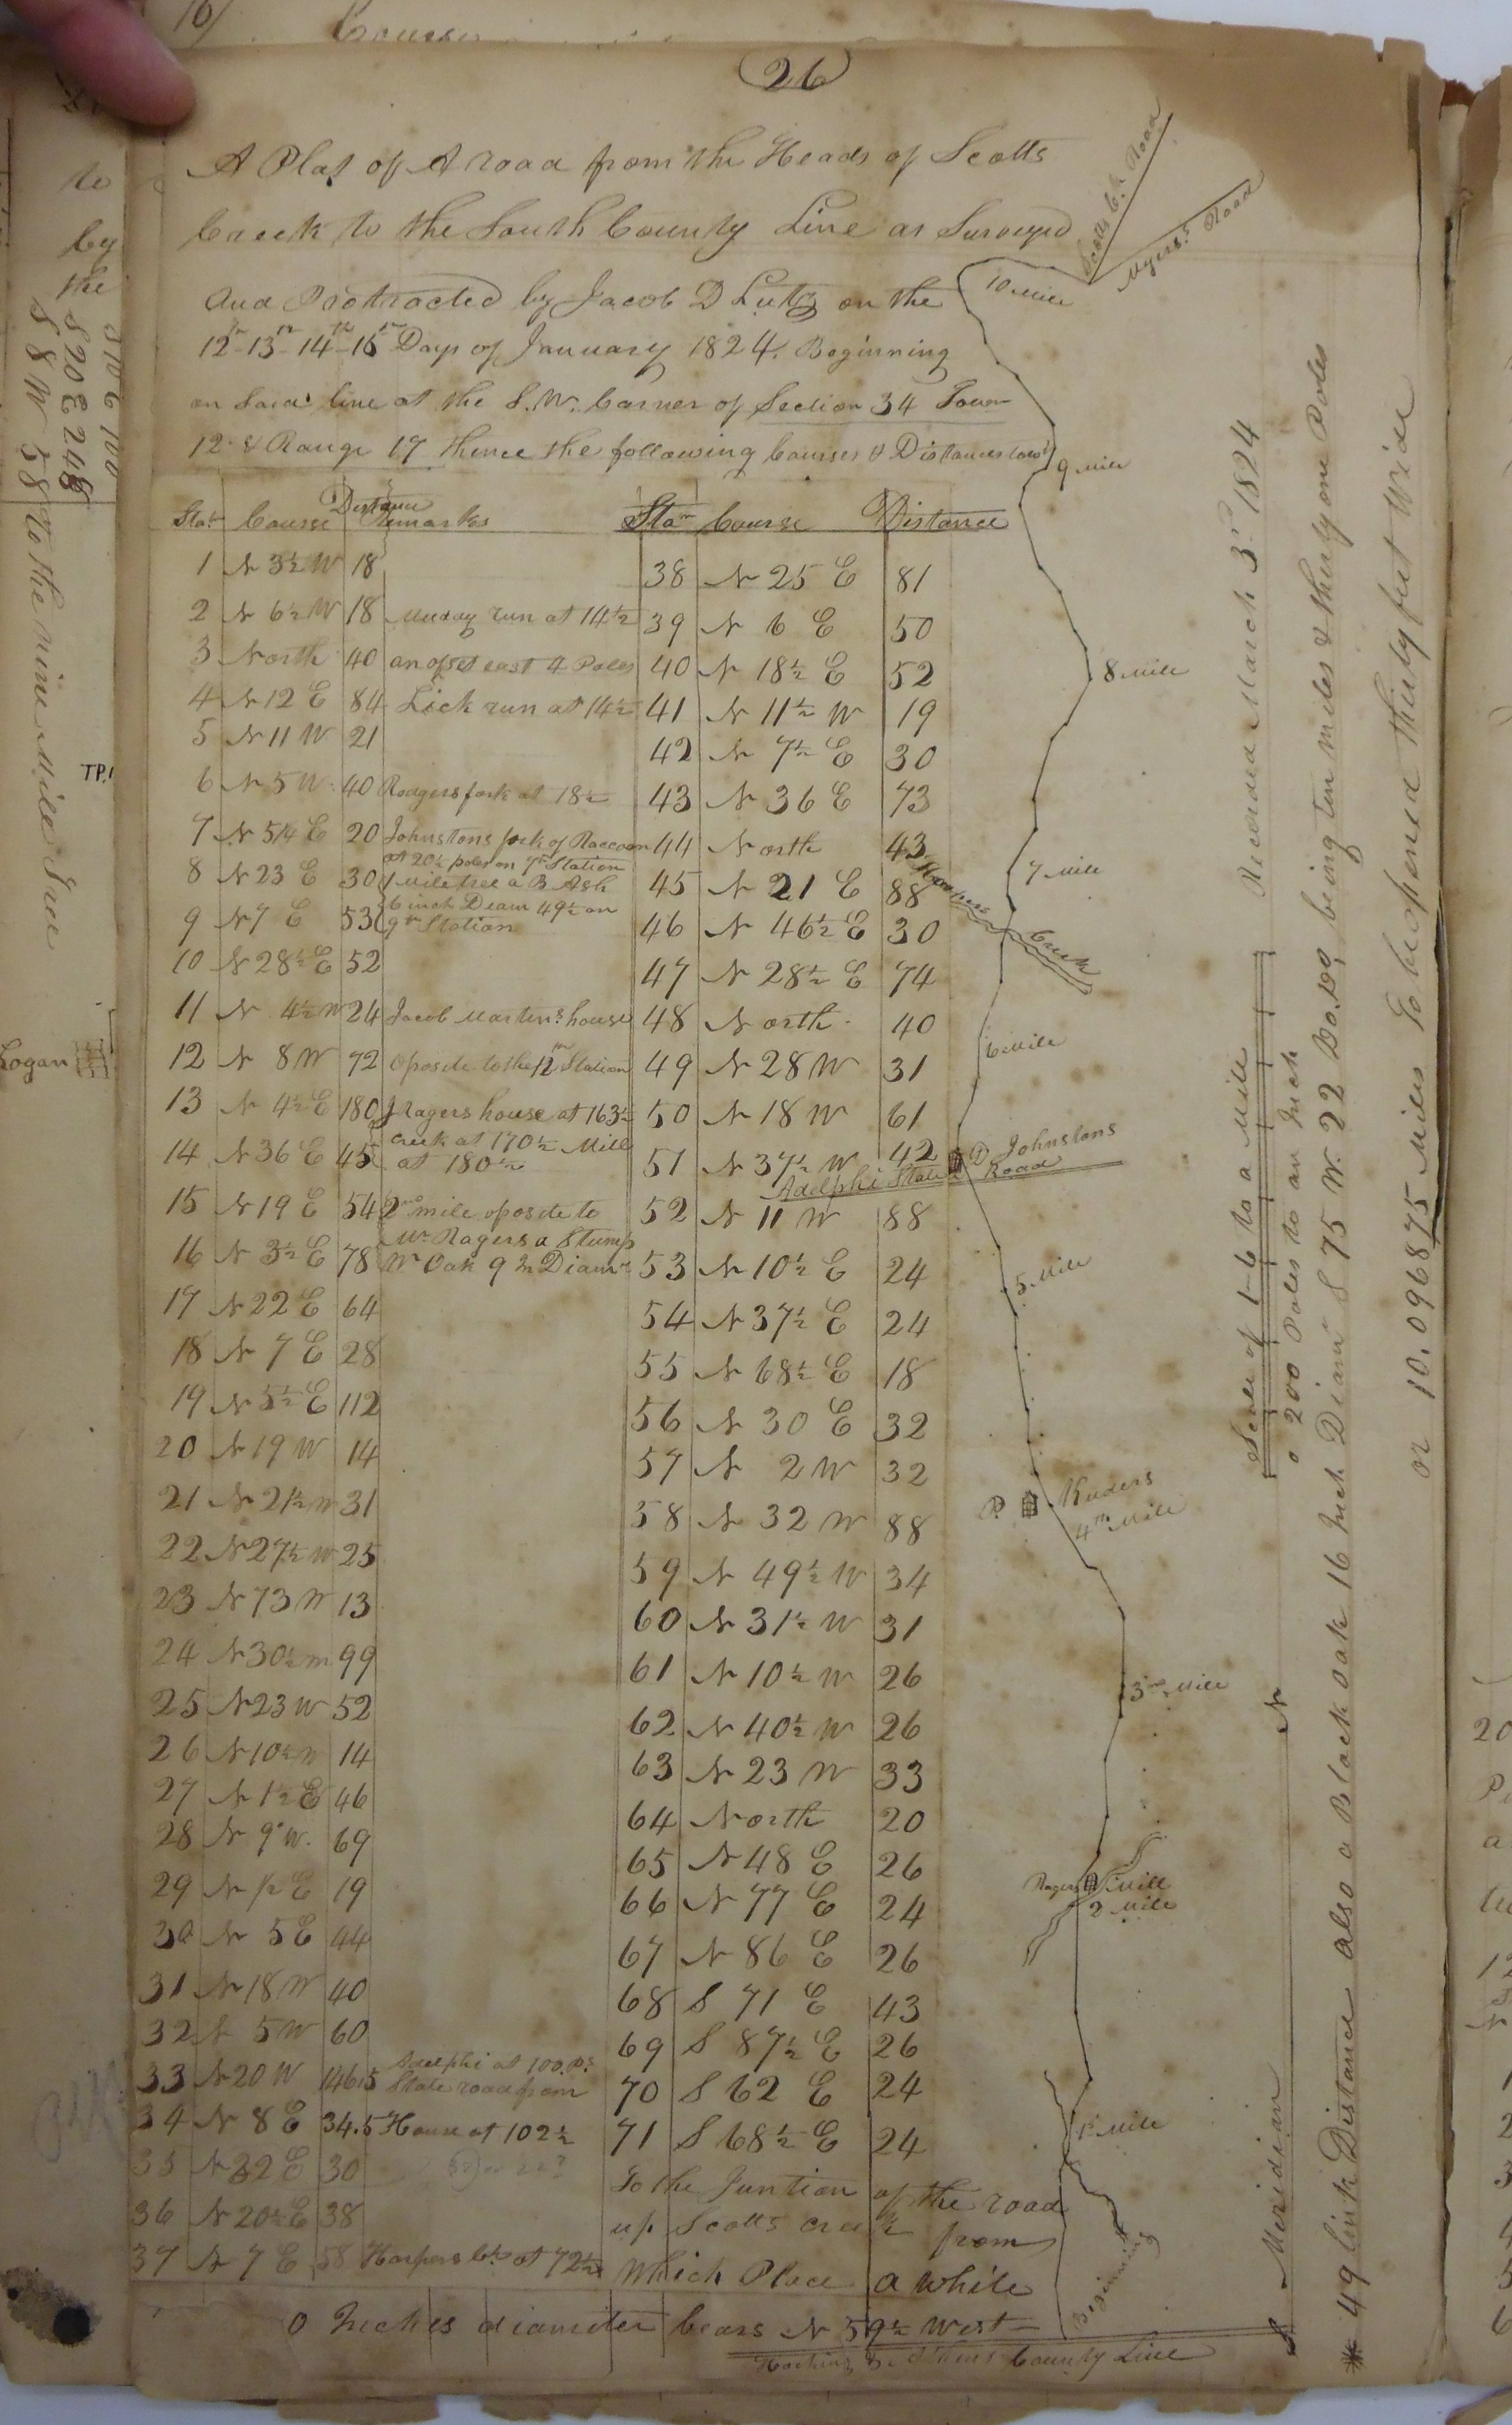 16/ Courses
26
A Plat of A road from the Heads of Scotts
Creek to the South County Line as Surveyed
and Protracted by Jacob D Lutz on the
12th 13th 14th 15th Days of January 1824. Beginning
on said line at the S.W. Corner of Section 34 Town
12 & Range 17 thence the following Courses & Distances
Stan Course Distance Remarks
1 N 3½ W 18
2 N 6½ W 18 Muday run at 14½
3 North 40 an ofset east 4 Poles
4 N 12 E 84 Lick run at 14½
5 N 11 W 21
6 N 5 W 40 Rodgers fork at 18½
7 N 51¼ E 20 Johnstons fork of Raccoon
at 20½ poles on 7th Station
8 N 23 E 30 1 Mile tree a B Ash
6 inch Diam 49½ on
9 N 7 E 53 9th Station
10 N 28½ E 52
11 N 4½ W 24 Jacob Martens house
12 N 8 W 72 oposite to the 12th Station
13 N 4½ E 180 J Ragers house at 163½
creek at 170½ Mill
14 N 36 E 45 at 180½
15 N 19 E 54 2nd mile oposite to
Mr Ragers a Stump
16 N 3½ E 78 W Oak 9 In Diamr
17 N 22 E 64
18 N 7 E 28
19 N 5½ E 112
20 N 19 W 14
21 N 21½ W 31
22 N 27½ W 25
23 N 73 W 13
24 N 30½ W 99
25 N 23 W 52
26 N 10½ W 14
27 N 1½ E 46
28 N 9° W. 69
29 N ½ E 19
30 N 5 E 44
31 N 18 W 40
32 N 5 W 60
Adelphi at 100 Ps
33 N 20 W 146.5 State road from
34 N 8 E 34.5 House at 102½
35 N 32 E 30
36 N 20½ E 38
37 N 7 E 58 Harpers Ck at 72½
Stan Course Distance
38 N 25 E 81
39 N 6 E 50
40 N 18½ E 52
41 N 11½ W 19
42 N 7½ E 30
43 N 36 E 73
44 North 43
45 N 21 E 88
46 N 46½ E 30
47 N 28½ E 74
48 North 40
49 N 28 W 31
50 N 18 W 61
51 N 37½ W 42
52 N 11 W 88
53 N 10½ E 24
54 N 37½ E 24
55 N 68½ E 18
56 N 30 E 32
57 N 2 W 32
58 N 32 W 88
59 N 49½ W 34
60 N 31½ W 31
61 N 10½ W 26
62 N 40½ W 26
63 N 23 W 33
64 North 20
65 N 48 E 26
66 N 77 E 24
67 N 86 E 26
68 S 71 E 43
69 S 87½ E 26
70 S 62 E 24
71 S 68½ E 24
To the Juntion of the road
up Scotts creek from
Which Place a while
0 Inches diameter bears N 59½ West
Hocking & Athens County Line
Scotts Ck Road
Myers Road
10 Mile
9 Mile
8 Mile
7 Mile
Harpers Creek
6 Mile
D Johnstons
Adelphi State Road
5 Mile
P. Kuders
4th Mile
3rd Mile
Ragers Mill
2 Mile
1st Mile
Beginning
Recorded March 3rd 1824
Scale of 1-6 to a Mile
o 200 Poles to an Inch
S Meridian N
49 link Distance also a Black oak 16 Inch Diamr S 75 W. 22 Do. Do, being ten miles & thirty one Poles
or 10.096875 Miles To be opened thirty feet wide
to
by
the
S 10 E 100
S 20 E 248
S 8 W 58 to the nine Mile Tree
TP.
Logan